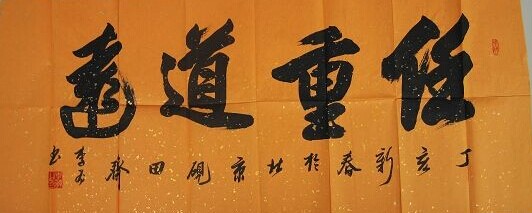 任重道遠
丁亥新春於北京硯田齋